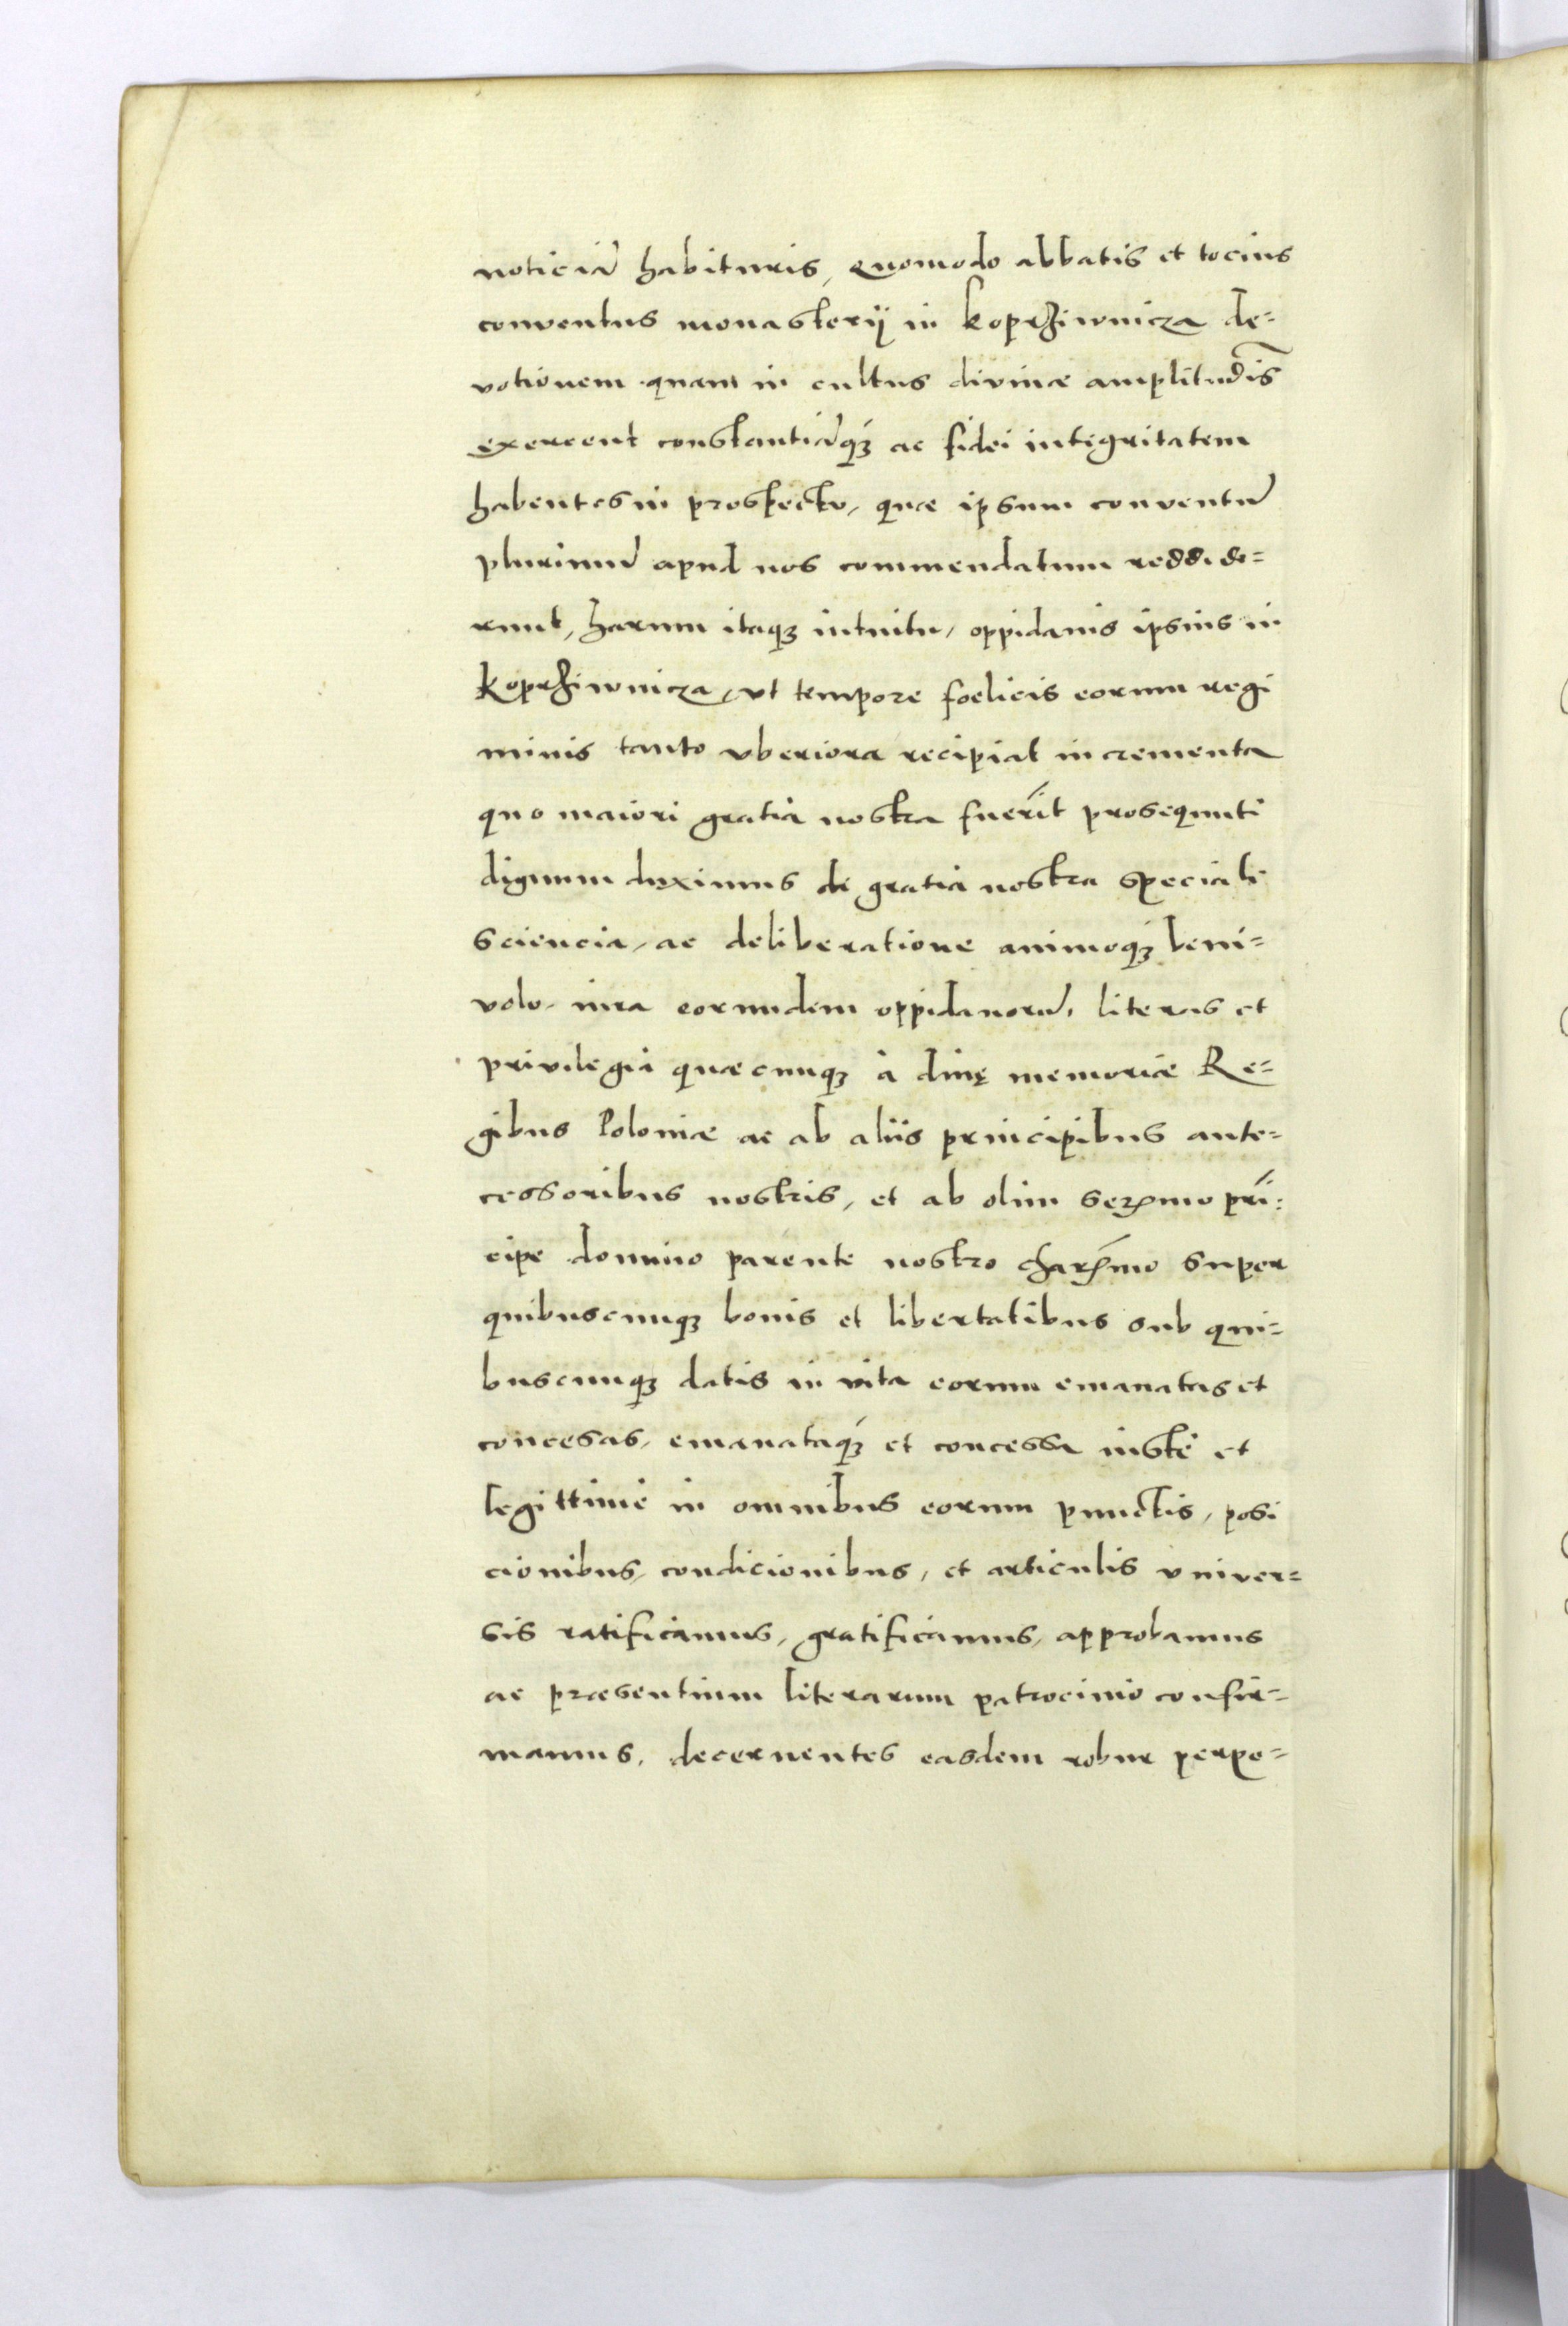 noticiā habituris, quomodo abbatis et tocius
conventus monasterij in Koprziwnicza de=
votionem quam in cultus divinæ amplitudīs
exercent constantiāq́ꝫ ac fidei integritatem
habentes in prospectu, quæ ipsum conventū
plurimū apud nos commendatum reddide=
runt, harum itaqꝫ intuitu, oppidanis ipsius in
Koprziwnicza, vt tempore foelicis eorum regi
minis tanto vberiora recipiat incrementa
quo maiori gratia nostra fuerīt prosequuti
dignum duximus de gratia nostra speciali
sciencia, ac deliberatione animoq́ꝫ beni=
volo, iura eorundem oppidanorū, literas et
privilegia quæcunqꝫ à divę memoriæ Re=
gibus Poloniæ ac ab aliis principibus ante=
cessoribus nostris, et ab olim serᷤmo prī=
cipe domino parente nostro charᷤmo super
quibuscunqꝫ bonis et libertatibus sub qui=
buscunqꝫ datis in vita eorum emanatas et
concesas, emanataq́ꝫ et concessa iustè et
legittimè in omnibus eorum punctis, posi
cionibus, condicionibus, et articulis vniver=
sis ratificamus, gratificamus, approbamus
ac præsentium literarum patrocinio confir=
mamus, decernentes easdem robur perpe=